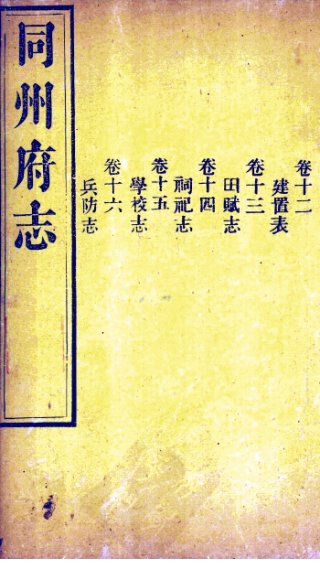 同州府志
卷十二
建置表
卷十三
田賦志
卷十四
祠祀志
卷十五
學校志
卷十六
兵防志